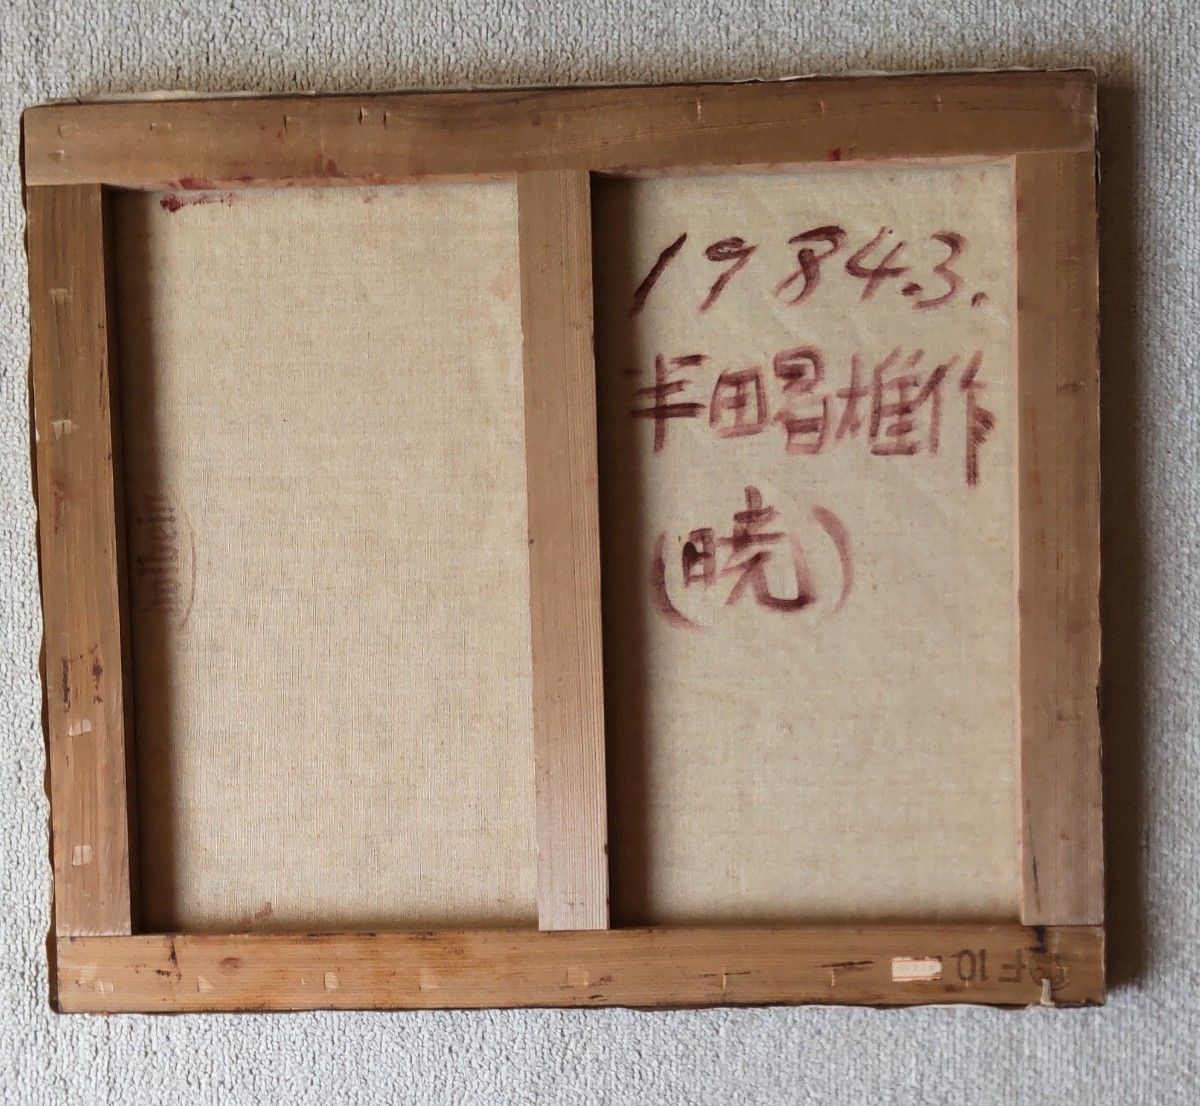 1984.3.
半田昌雄作
(暁)
F10